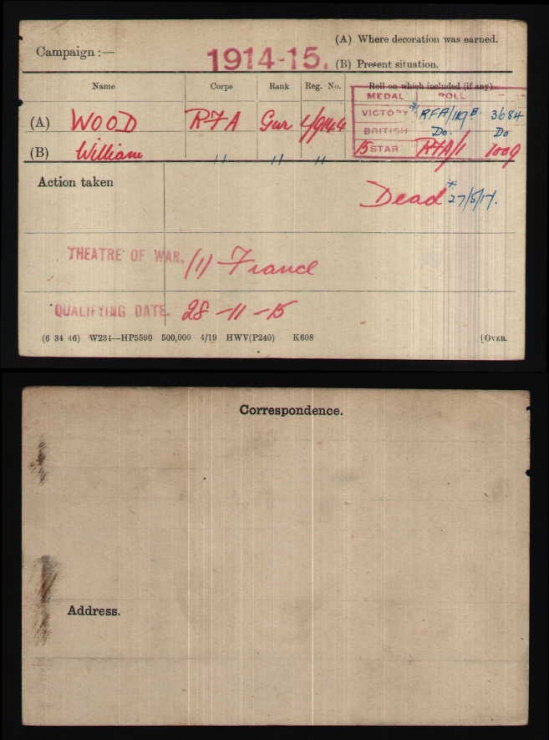 (A) Where decoration was earned.
Campaign :— 1914-15. (B) Present situation.
Name Corps Rank Reg. No. Roll on which included (if any).
MEDAL ROLL
(A) WOOD RFA Gnr L/9144 VICTORY RFA/119 B. 3684
BRITISH Do. Do
(B) William " " " 15 STAR RFA/1 1009
Action taken
Dead 27/5/17.
THEATRE OF WAR. (1) France
QUALIFYING DATE. 28-11-15
(6 34 46) W234—HP5590 500,000 4/19 HWV(P240) K608 [OVER.
Correspondence.
Address.